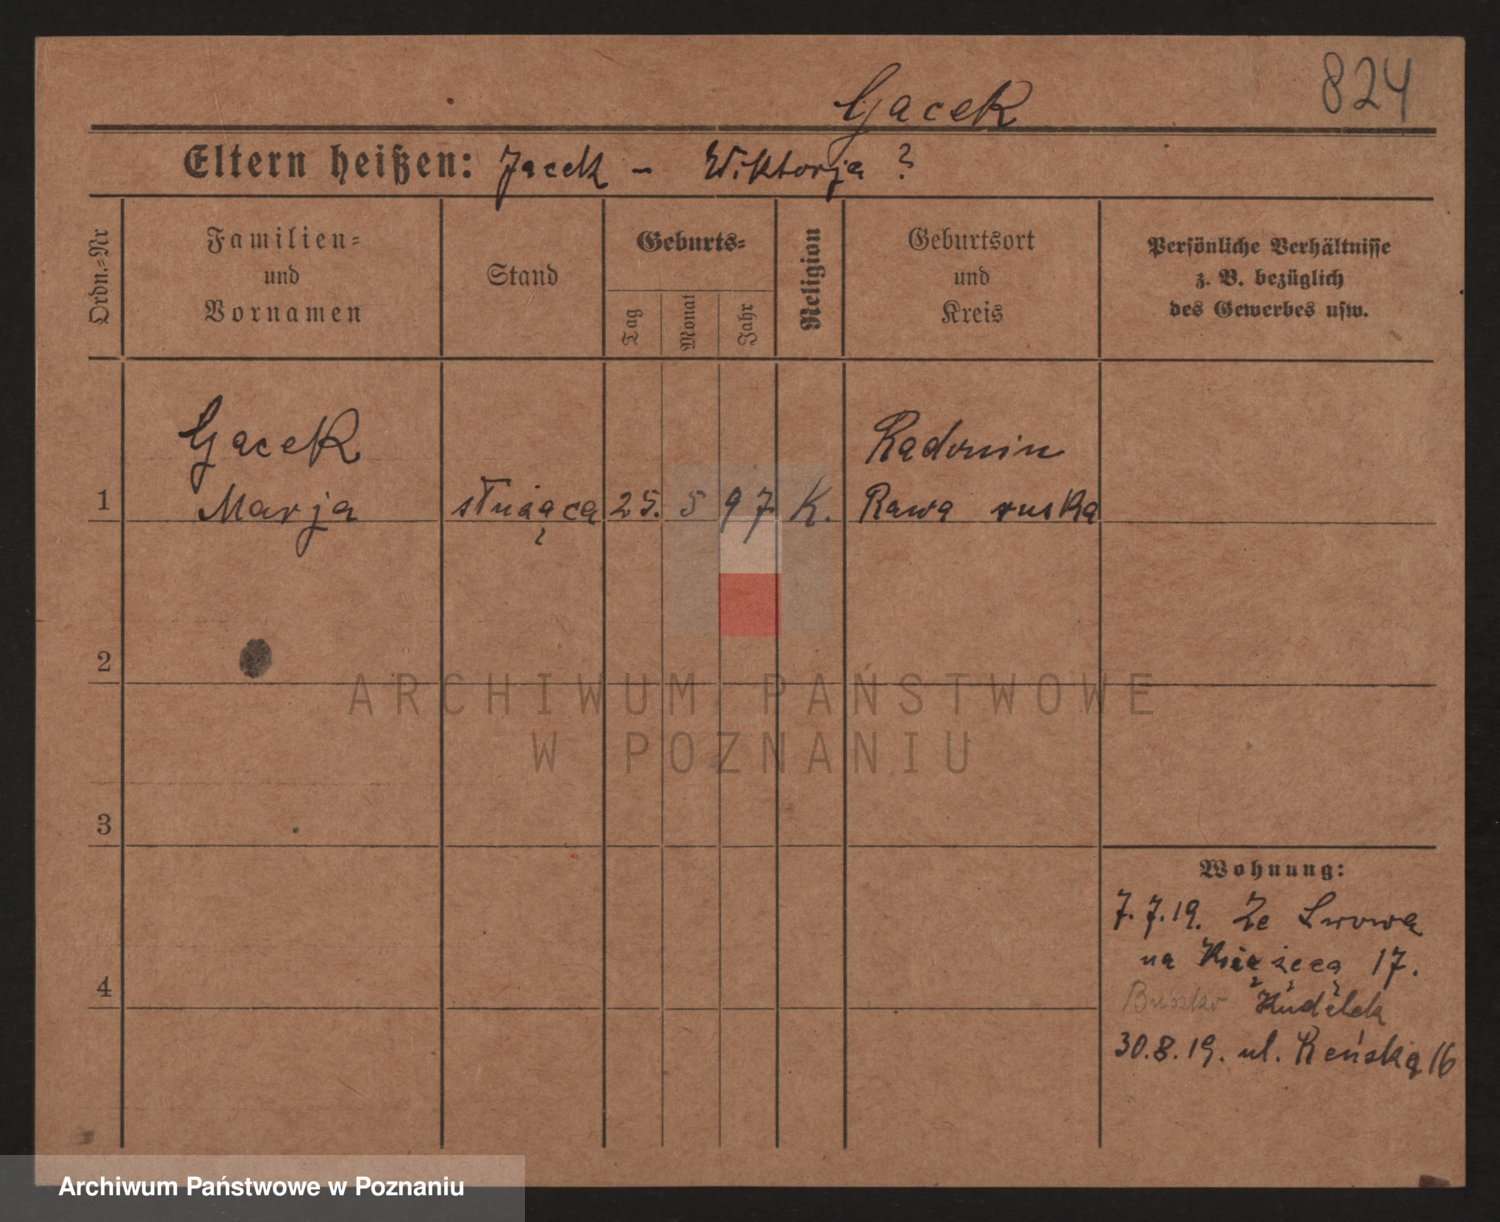 824
Gacek
Eltern heißen: Jacek - Wiktorja ?
Ordn.=Nr
Familien=
und
Vornamen
Stand
Geburts=
Tag
Monat
Jahr
Religion
Geburtsort
und
Kreis
Persönliche Verhältnisse
z. B. bezüglich
des Gewerbes usw.
1
Gacek
Marja
służąca
25.
5
97
K.
Radonin
Rawa ruska
2
3
4
Wohnung:
7.7.19. Ze Lwowa
na Książęcą 17.
Kudełek
30.8.19. ul. Reńska 16
ARCHIWUM PAŃSTWOWE
W POZNANIU
Archiwum Państwowe w Poznaniu